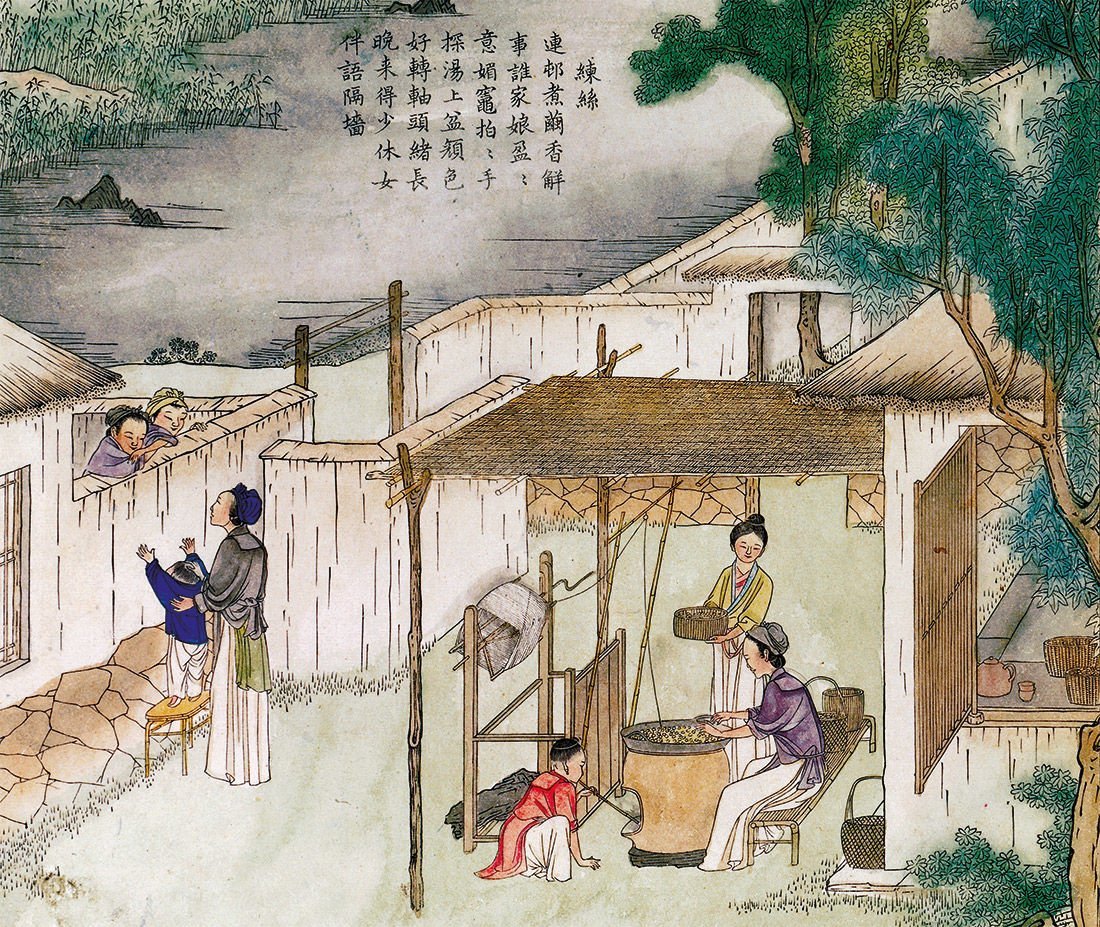 練絲
連邨煮繭香觧
事誰家娘盈〻
意媚竈拍〻手
探湯上盆顔色
好轉軸頭緒長
晚来得少休女
伴語隔墻